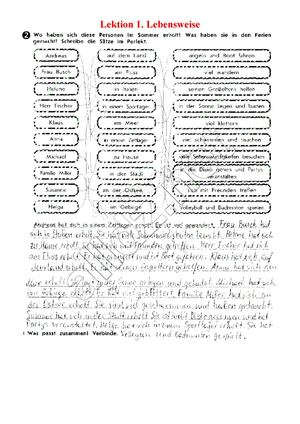 Lektion 1. Lebensweise
2 Wo haben sich diese Personen im Sommer erholt? Was haben sie in den Ferien
gemacht? Schreibe die Sätze im Perfekt.
Andreas auf dem Land angeln und Boot fahren
Frau Busch am Fluss viel wandern
Helene in Italien seinen Großeltern helfen
Herr Fischer in einem Sportlager in der Sonne liegen und baden
Klaus am Meer viel klettern
Anna in einem Zeltlager viel schwimmen und tauchen
Michael zu Hause viele Sehenswürdigkeiten besuchen
Familie Müller in der Stadt in die Disko gehen und Partys veranstalten
Susanne an der Ostsee sich mit Freunden treffen
Helga im Gebirge Volleyball und Badminton spielen
Andreas hat sich in einem Zeltlager erholt. Er ist viel gewandert. Frau Busch hat
sich in Italien erholt. Sie hat viele Sehenswürdigkeiten besucht. Helene hat sich
zu Hause erholt. Sie hat sich mit Freunden getroffen. Herr Fischer hat sich
am Fluss erholt. Er hat geangelt und ist Boot gefahren. Klaus hat sich auf
dem Land erholt. Er hat seinen Großeltern geholfen. Anna hat sich am
Meer erholt. Sie hat in der Sonne gelegen und gebadet. Michael hat sich
im Gebirge erholt. Er ist viel geklettert. Familie Müller hat sich an
der Ostsee erholt. Sie sind viel geschwommen und haben getaucht.
Susanne hat sich in der Stadt erholt. Sie ist in die Disko gegangen und hat
Partys veranstaltet. Helga hat sich in einem Sportlager erholt. Sie hat
Was passt zusammen? Verbinde. Volleyball und Badminton gespielt.